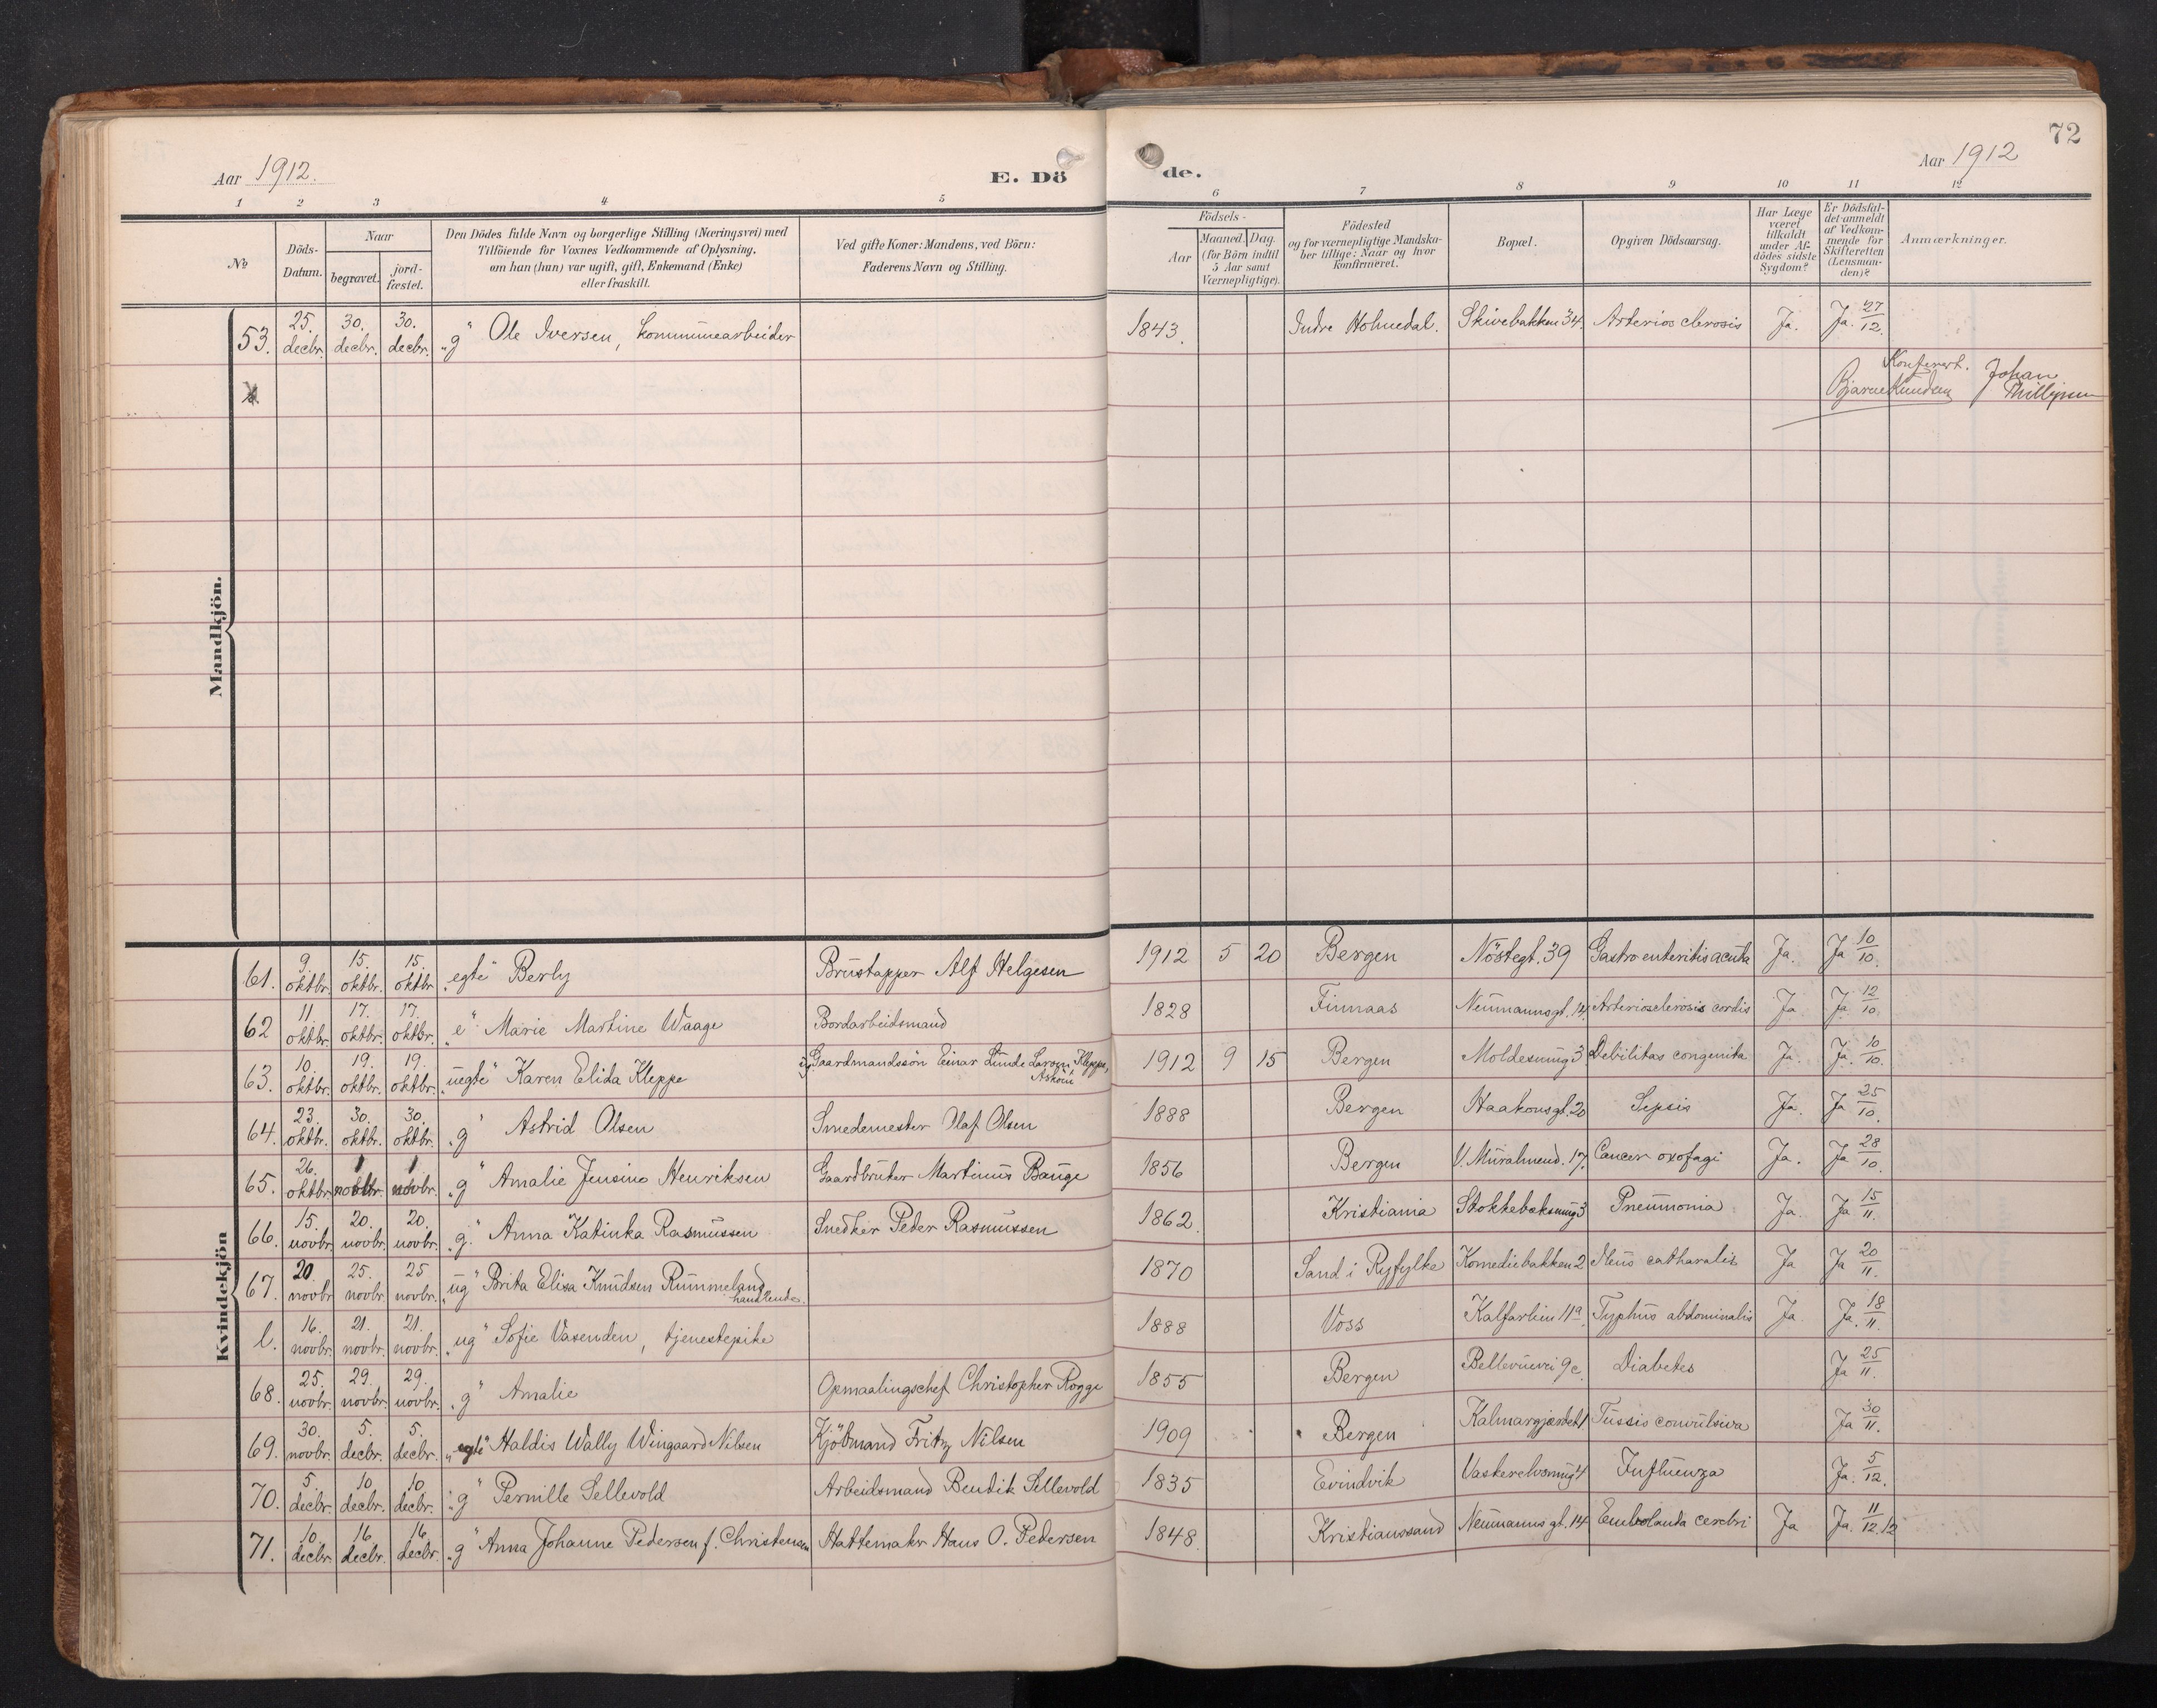 72
Aar 1912.
E. Dö de.
Aar 1912
1 2 3 4 5 6 7 8 9 10 11 12
No
Döds-Datum.
Naar
begravet.
jord-fæstet.
Den Dödes fulde Navn og borgerlige Stilling (Næringsvei) med
Tilföiende for Voxnes Vedkommende af Oplysning.
om han (hun) var ugift, gift, Enkemand (Enke)
eller fraskilt.
Ved gifte Koner: Mandens, ved Börn:
Faderens Navn og Stilling.
Födsels-
Aar
Maaned. Dag.
(for Börn indtil
5 Aar samt
Værnepligtige).
Födested
og for værnepligtige Mandska-
ber tillige: Naar og hvor
konfirmeret.
Bopæl.
Opgiven Dödsaarsag.
Har Læge
været
tilkaldt
under Af-
dödes sidste
Sygdom?
Er Dödsfal-
det anmeldt
af Vedkom-
mende for
Skifteretten
(Lensman-
den)?
Anmærkninger.
Mandkjön.
53. 25. decbr. 30. decbr. 30. decbr. "g" Ole Iversen, kommunearbeider 1843. Indre Holmedal. Skivebakken 34. Arterios clerosis Ja. Ja. 27/12.
Konferert.
Bjarne Knudsen Johan Phillipsen
Kvindekjön
61. 9. oktbr. 15. oktbr. 15. oktbr. "egte" Berly Brustapper Alf Helgesen 1912 5 20 Bergen Nöstegt. 39 Gastro enteritis acuta Ja. Ja 10/10.
62 11. oktbr. 17. oktbr. 17. oktbr. "e" Marie Martine Waage Bordarbeidsmand 1828 Finnaas Neumannsgt. 14. Arteriosclerosis cordis Ja Ja 12/10.
63. 10. oktbr. 19. oktbr. 19. oktbr. "uegte" Karen Elida Kleppe Gaardmandssön Einar Lunde Larsen Kleppe, Asköen 1912 9 15 Bergen Moldesmug 3 Debilitas congenita Ja. Ja. 10/10.
64. 23. oktbr. 30. oktbr. 30. oktbr. "g" Astrid Olsen Smedemester Olaf Olsen 1888 Bergen Haakonsgt. 20 Sepsis Ja. Ja 25/10.
65. 26. oktbr. 1 novbr. 1 novbr. "g" Amalie Jensine Henriksen Gaardbruker Martinus Bauge 1856 Bergen V. Muralmend. 17. Cancer oxofagi Ja. Ja 28/10.
66. 15. novbr. 20. novbr. 20. novbr. "g." Anna Katinka Rasmussen Snedker Peder Rasmussen 1862. Kristiania Stokkebæksmug 3 Pneumonia Ja. Ja 15/11.
67. 20. novbr 25. novbr. 25 novbr. "ug" Brita Elisa Knudsen Rummeland handlende. 1870 Sand i Ryfylke Komediebakken 2 Ileus catharalis Ja Ja 20/11.
l. 16. novbr. 21. novbr. 21. novbr. "ug" Sofie Vasenden, tjenestepike 1888 Voss Kalfarlien 11a. Typhus abdominalis Ja. Ja. 18/11.
68. 25. novbr. 29. novbr. 29. novbr. "g" Amalie Opmaalingschef Christopher Rogge 1855 Bergen Bellevuevei 9c. Diabetes Ja 25/11.
69. 30. novbr. 5. decbr. 5. decbr. "egte" Haldis Wally Wingaard Nilsen Kjöbmand Fritz Nilsen 1909 Bergen Kalmargjærdet 1. Tussis convulsiva Ja 30/11.
70. 5. decbr. 10. decbr. 10. decbr. "g" Pernille Sellevold Arbeidsmand Bendik Sellevold 1835 Evindvik Vaskerelvsmug 4 Influenza Ja. 5/12.
71. 10. decbr. 16. decbr. 16. decbr. "g" Anna Johanne Pedersen f. Christensen Hattemaker Hans O. Pedersen 1848. Kristianssand Neumanns gt. 14 cerebri Ja Ja. 11/12. 12